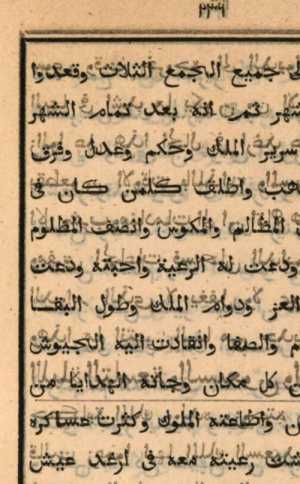 ٢٣٦
جميع الجمع الثلاث وقعدوا
شهر ثمر انه بعد تمام الشهر
سرير الملك وحكم وعدل وفرق
واطلف كلمن كان فى
المظالم والمكوس وانصف المظلوم
ودعت له الرعية واحبته ودعت
العز ودوام الملك وطول البقا
والصفا وانقادت اليه الجيوش
كل مكان وجاته الهدايا من
واطاعته الملوك وكثرت عساكره
رعيته معه فى ارغد عيش